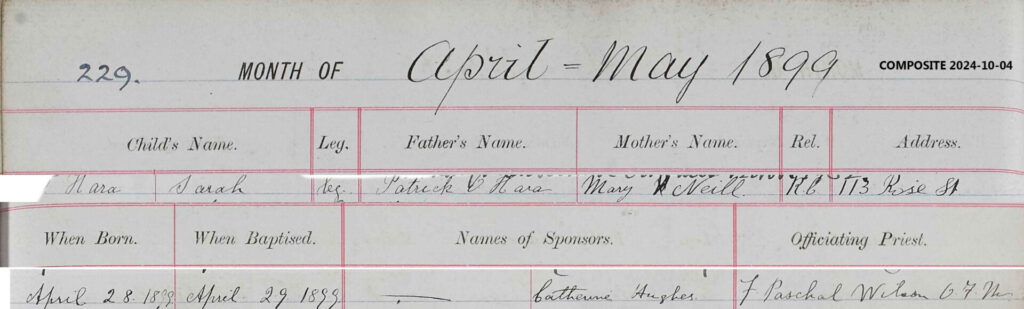 229. MONTH OF April = May 1899 COMPOSITE 2024-10-04
Child's Name. Leg. Father's Name. Mother's Name. Rel. Address.
Hara Sarah leg. Patrick O Hara Mary McNeill RC 113 Rose St
When Born. When Baptised. Names of Sponsors. Officiating Priest.
April 28. 1899 April 29 1899 — Catherine Hughes F Paschal Wilson O.F.M.